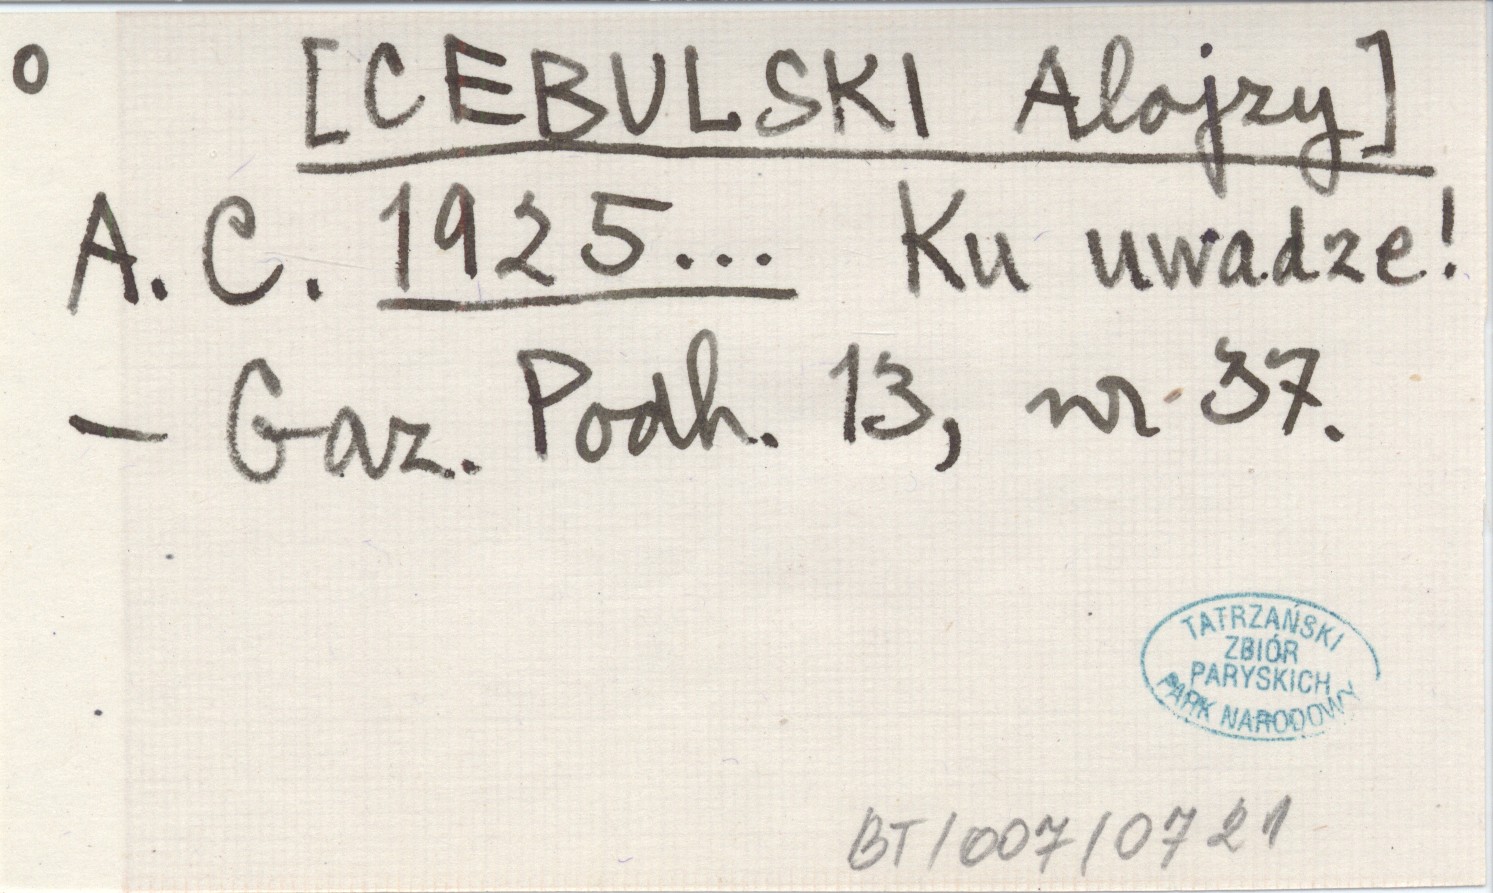 o [CEBULSKI Alojzy]
A. C. 1925... Ku uwadze!
— Gaz. Podh. 13, nr 37.
TATRZAŃSKI
ZBIÓR
PARYSKICH
PARK NARODOWY
BT/007/0721